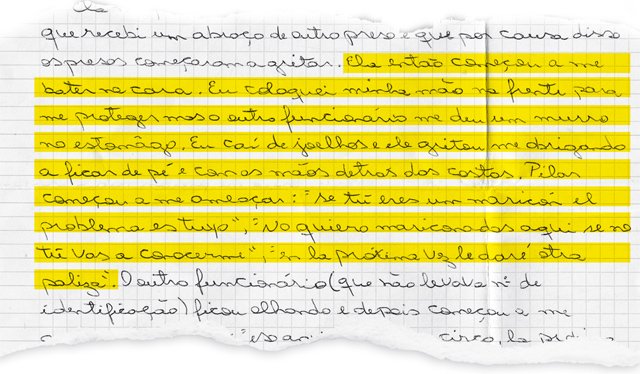 ela
que recebi um abraço de outro preso e que por causa disso
os presos começaram a gritar. Ela então começou a me
bater na cara. Eu coloquei minha mão na frente para
me proteger mas o outro funcionário me deu um murro
no estomâgo. Eu caí de joelhos e ele gritou me obrigando
a ficar de pé e com as mãos detras das costas. Pilar
começou a me ameaçar: "se tú eres un maricón el
problema es tuyo", "No quiero mariconadas aqui se no
tú vas a conocerme", "en la próxima vez le daré otra
paliza". O outro funcionário (que não levava nº de
identificação) ficou olhando e depois começou a me
circo, la